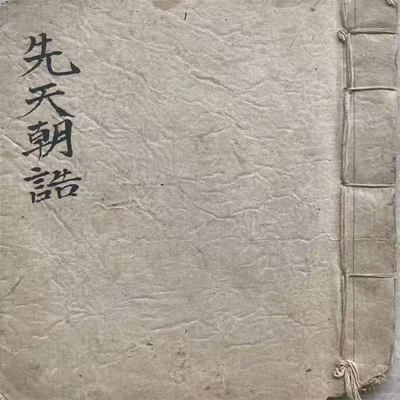 先天朝誥